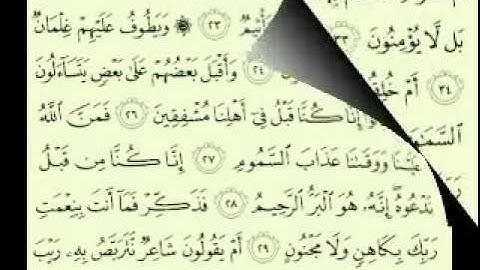 بَل لَّا يُؤْمِنُونَ ٣٣ ٢٣ ۞ وَيَطُوفُ عَلَيْهِمْ غِلْمَانٌ
٣٤ أَمْ ٢٤ وَأَقْبَلَ بَعْضُهُمْ عَلَىٰ بَعْضٍ يَتَسَآءَلُونَ
إِنَّا كُنَّا قَبْلُ فِىٓ أَهْلِنَا مُشْفِقِينَ ٢٦ فَمَنَّ ٱللَّهُ
عَلَيْنَا وَوَقَىٰنَا عَذَابَ ٱلسَّمُومِ ٢٧ إِنَّا كُنَّا مِن قَبْلُ
نَدْعُوهُ إِنَّهُۥ هُوَ ٱلْبَرُّ ٱلرَّحِيمُ ٢٨ فَذَكِّرْ فَمَآ أَنتَ بِنِعْمَتِ
رَبِّكَ بِكَاهِنٍ وَلَا مَجْنُونٍ ٢٩ أَمْ يَقُولُونَ شَاعِرٌ نَّتَرَبَّصُ بِهِۦ رَيْبَ